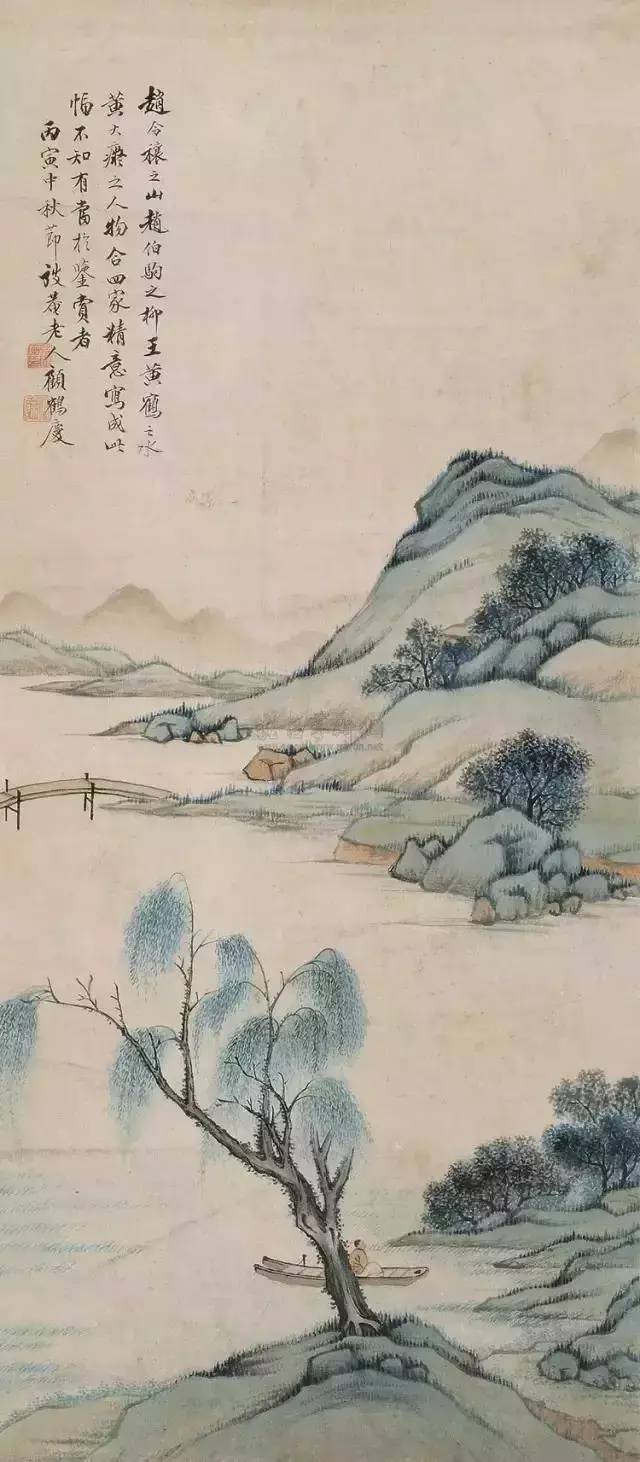 趙令穰之山趙伯駒之柳王黃鶴之水
黃大癡之人物合四家精意寫成此
幅不知有當於鑒賞者
丙寅中秋節弢菴老人顧鶴慶